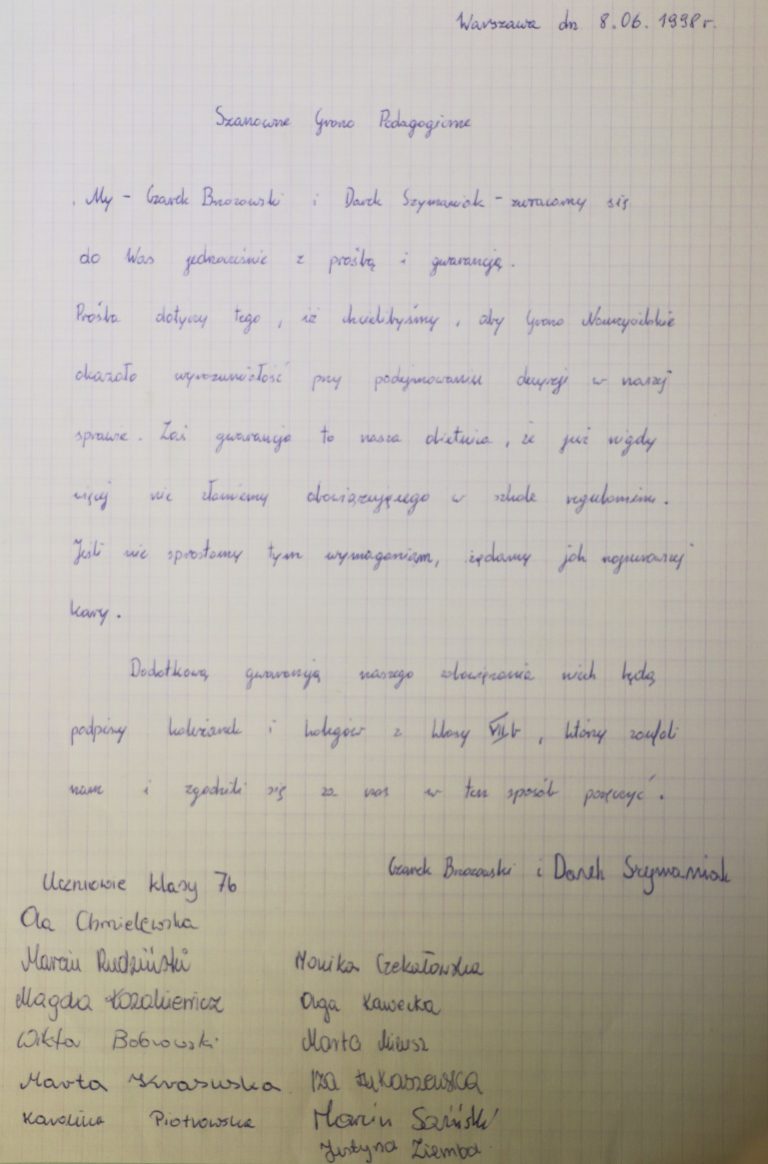 Warszawa dn 8.06.1998r.
Szanowne Grono Pedagogiczne
My - Czarek Brzozowski i Darek Szymaniak - zwracamy się
do Was jednocześnie z prośbą i gwarancją.
Prośba dotyczy tego, iż chcielibyśmy, aby Grono Nauczycielskie
okazało wyrozumiałość przy podejmowaniu decyzji w naszej
sprawie. Zaś gwarancja to nasza obietnica, że już nigdy
więcej nie złamiemy obowiązującego w szkole regulaminu.
Jeśli nie sprostamy tym wymaganiom, żądamy jak najsurowszej
kary.
Dodatkową gwarancją naszego zobowiązania niech będą
podpisy koleżanek i kolegów z klasy VII b, którzy zaufali
nam i zgodzili się za nas w ten sposób poręczyć.
Czarek Brzozowski i Darek Szymaniak
Uczniowie klasy 7b
Ola Chmielewska
Marcin Rudziński Monika Czekałowska
Magda Kozakiewicz Olga Kawecka
Wiktor Bobrowski Marta
Marta Krasuska Iza Łukaszewska
Karolina Piotrowska Marcin
Justyna Ziemba